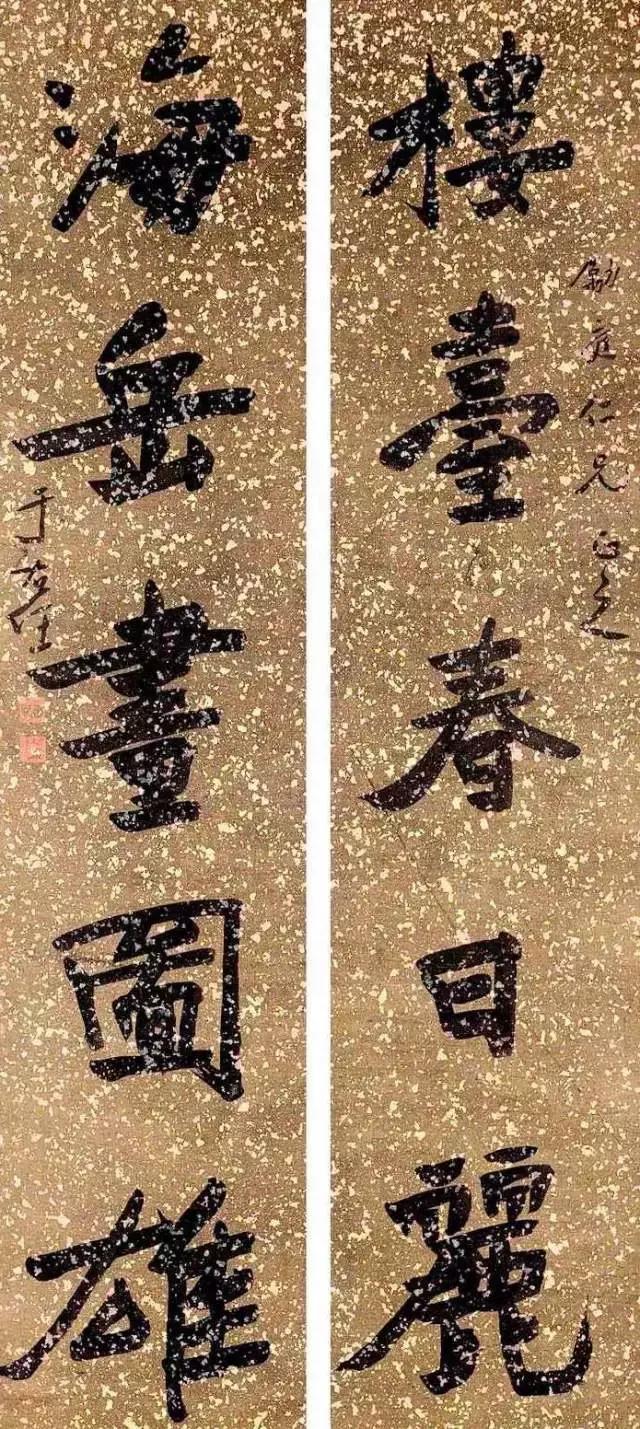 樓臺春日麗
勵庭仁兄正之
海岳畫圖雄
于右任